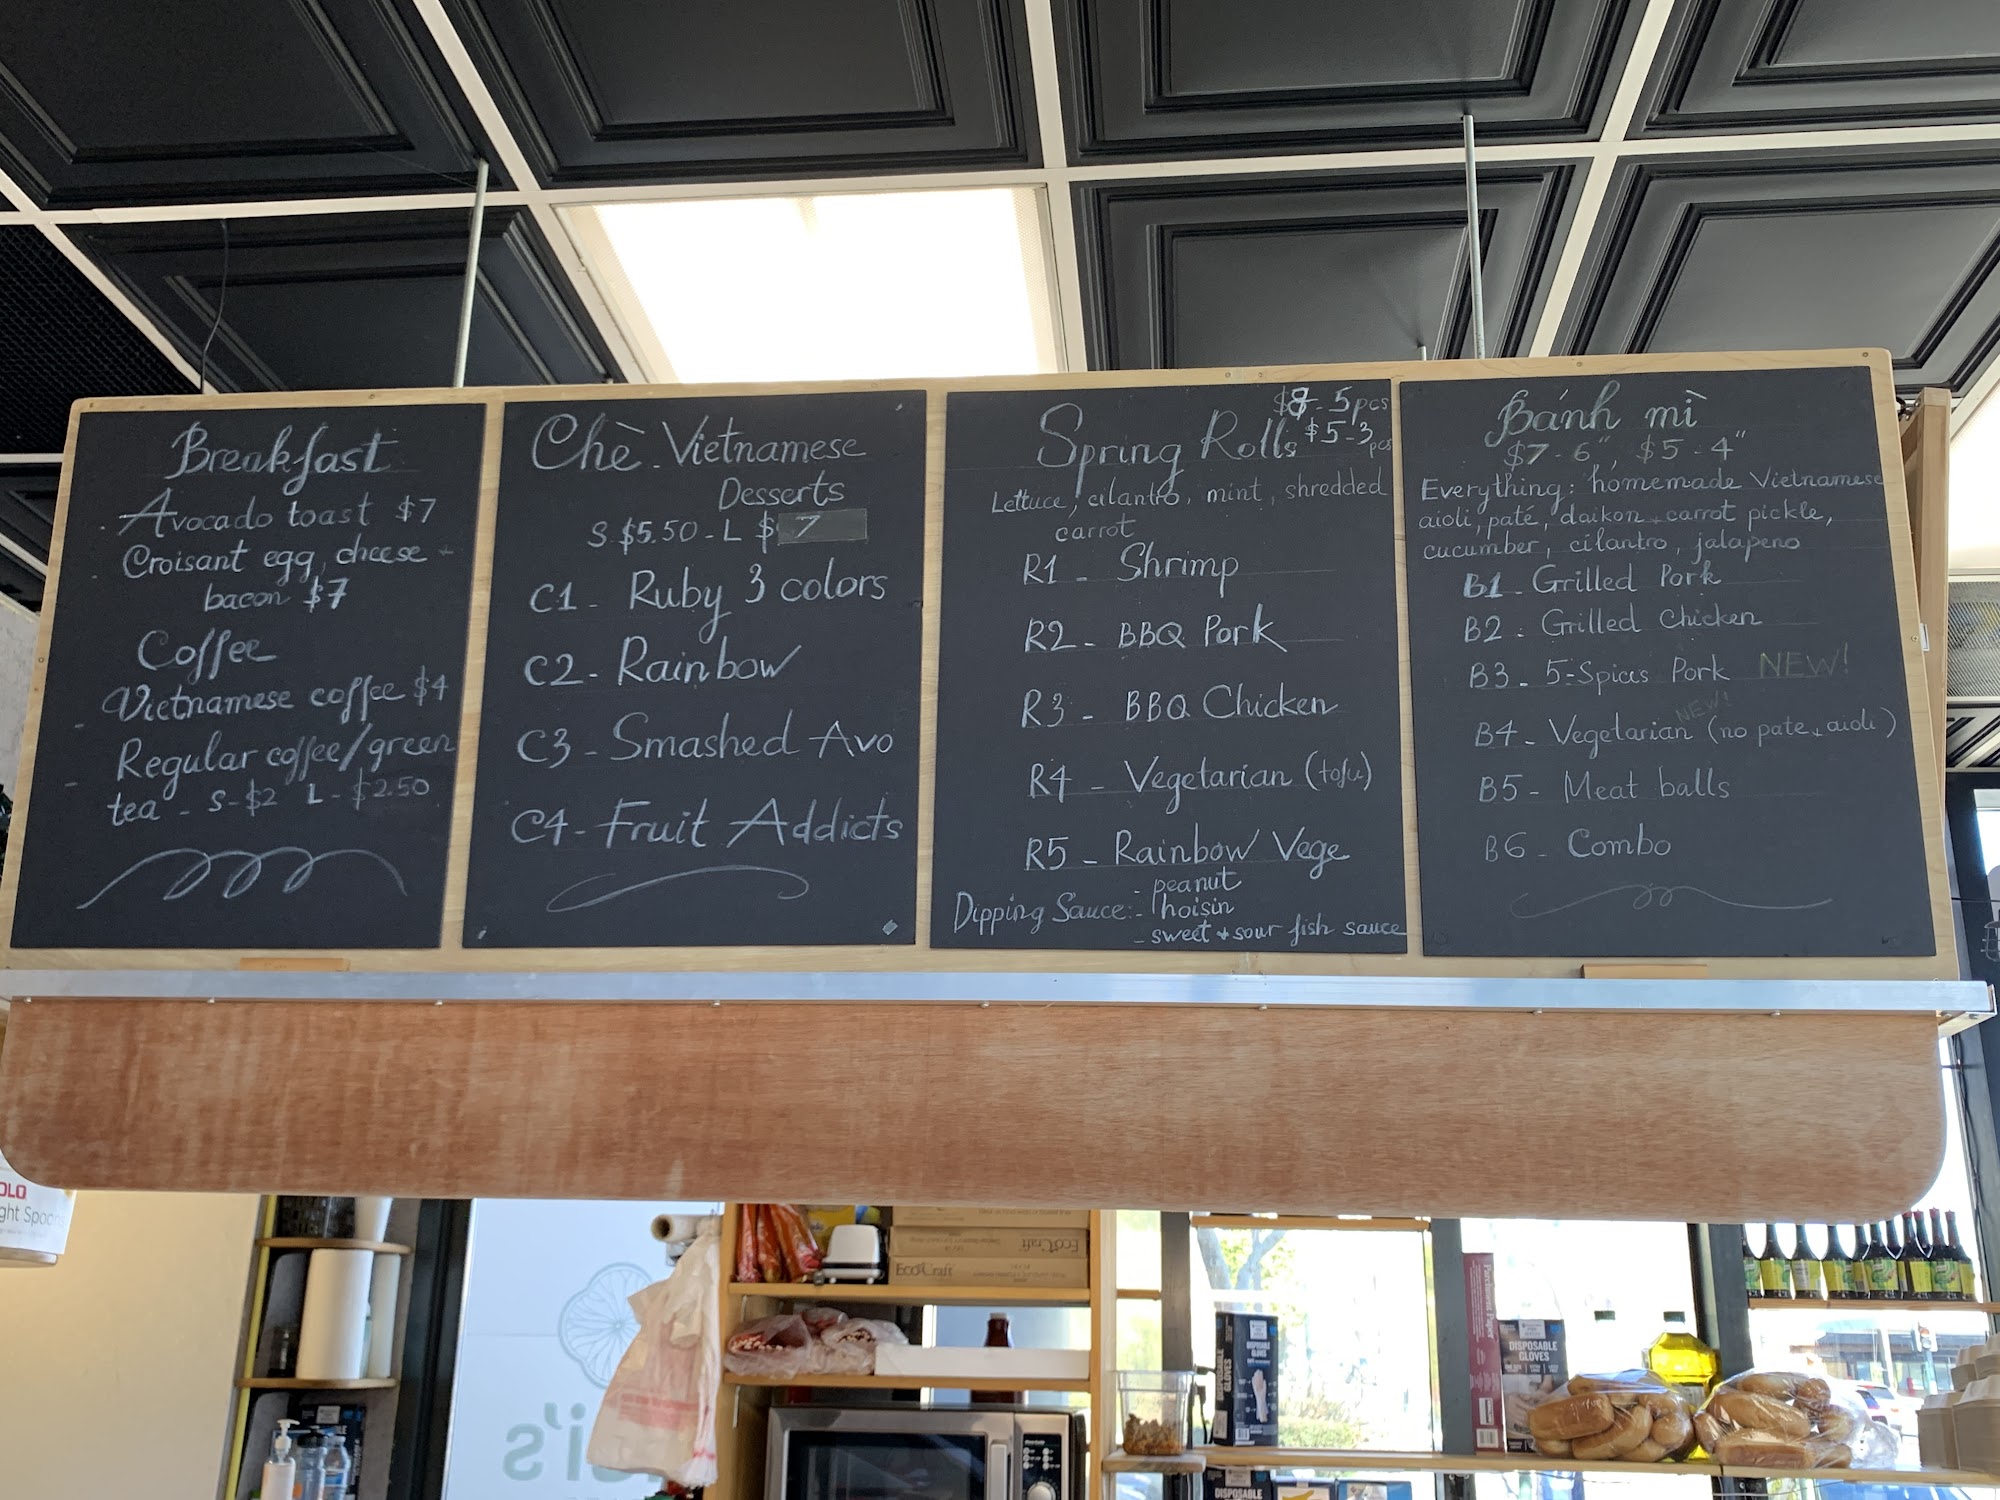 Breakfast
- Avocado toast $7
- Croisant egg, cheese +
bacon $7
Coffee
- Vietnamese coffee $4
- Regular coffee/green
tea - S-$2 L-$2.50
Chè - Vietnamese
Desserts
S $5.50 - L $7
C1 - Ruby 3 colors
C2 - Rainbow
C3 - Smashed Avo
C4 - Fruit Addicts
$8 - 5pcs
Spring Rolls $5-3 pcs
Lettuce, cilantro, mint, shredded
carrot
R1 - Shrimp
R2 - BBQ Pork
R3 - BBQ Chicken
R4 - Vegetarian (tofu)
R5 - Rainbow Vege
Dipping Sauce: - peanut
- hoisin
- sweet + sour fish sauce
Bánh mì
$7 - 6", $5 - 4"
Everything: homemade Vietnamese
aioli, paté, daikon + carrot pickle,
cucumber, cilantro, jalapeno
B1 - Grilled Pork
B2 - Grilled Chicken
B3 - 5-Spices Pork NEW!
NEW!
B4 - Vegetarian (no pate + aioli)
B5 - Meat balls
B6 - Combo
OLO
ght Spoons
EcoCraft
EcoCraft
DISPOSABLE
GLOVES
Parchment Paper
DISPOSABLE
GLOVES
DISPOSABLE